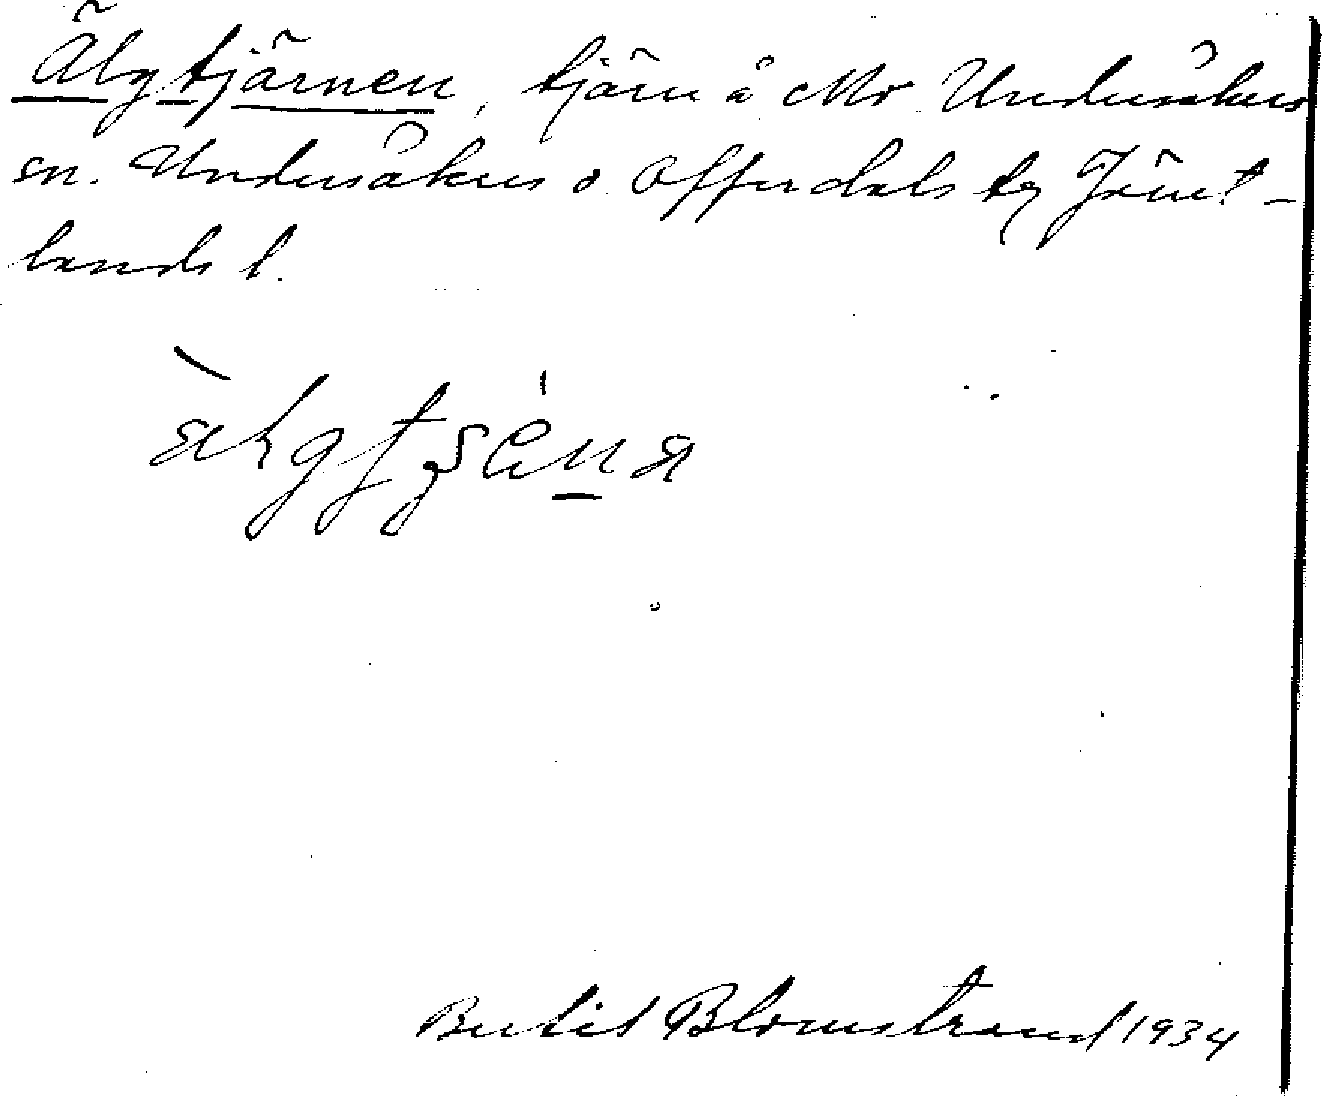 Älgtjärnen, tjärn å Mo Undersåkers
sn. Undersåkers o Offerdals tg Jämt-
lands l.
Bertil Blomstrand 1934